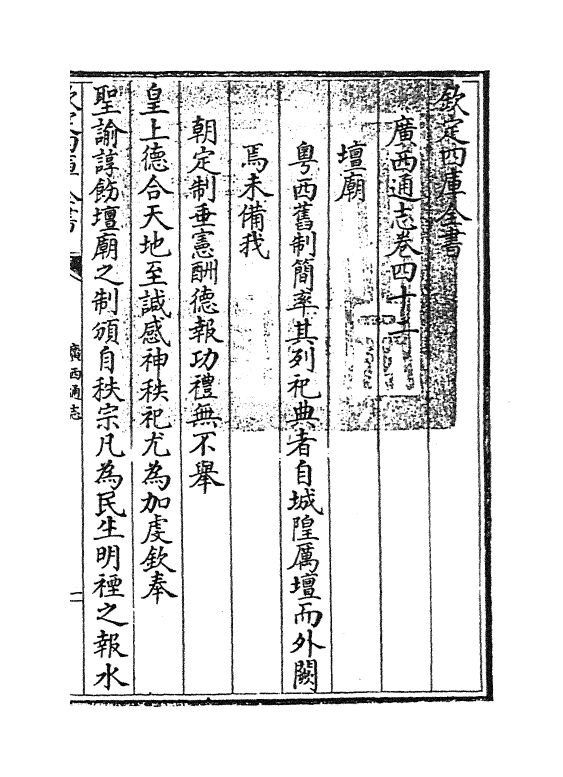 欽定四庫全書
廣西通志卷四十二
壇廟
粵西舊制簡率其列祀典者自城隍厲壇而外闕
焉未備我
朝定制垂憲酬德報功禮無不舉
皇上德合天地至誠感神秩祀尤為加虔欽奉
聖諭諄飭壇廟之制頒自秩宗凡為民生明禋之報水
欽定四庫全書 廣西通志 一